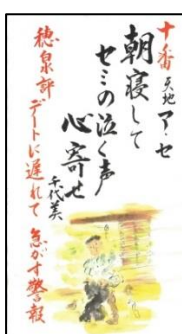 十番 天地 ア・セ
朝寝して
セミの泣く声
心寄せ
千代美
穂泉評 デートに遅れて 急かす警報